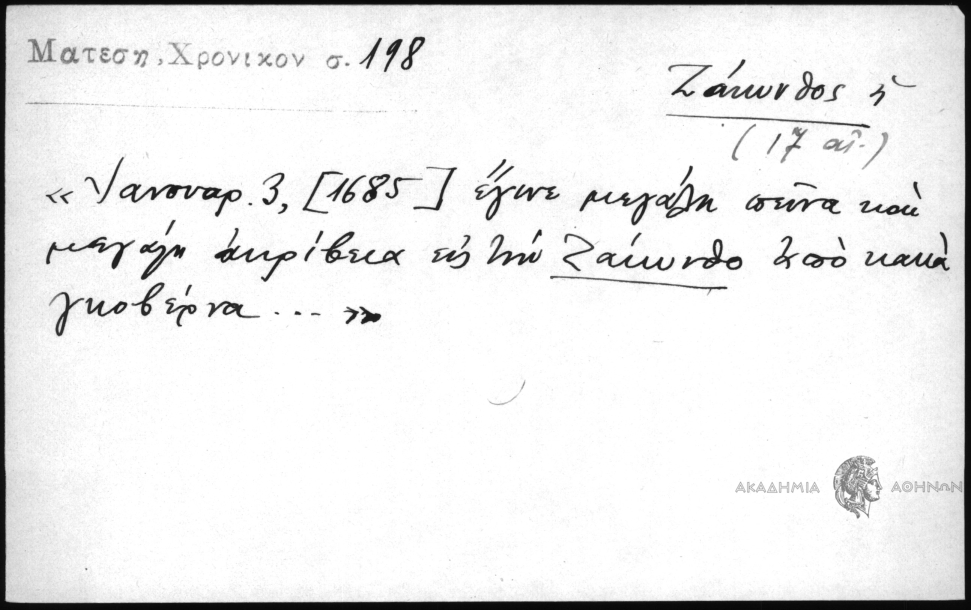 Ματεση, Χρονικον σ. 198
Ζάκυνθος ἡ
(17 αἰ.)
« Ἰανουαρ. 3, [1685] ἔγινε μεγάλη πεῖνα καὶ
μεγάλη ἀκρίβεια εἰς τὴν Ζάκυνθο ἀπὸ κακὰ
γκοβέρνα ... »
ΑΚΑΔΗΜΙΑ ΑΘΗΝΩΝ